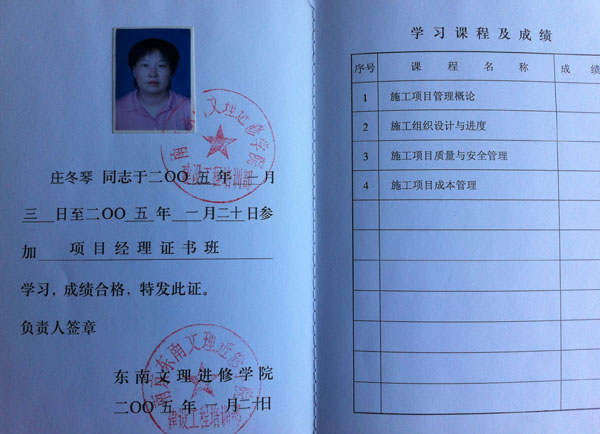 庄冬琴 同志于二〇〇五年一月
三日至二〇〇五年一月二十日参
加 项目经理证书班
学习，成绩合格，特发此证。
负责人签章
东南文理进修学院
二〇〇五年一月二十日
东南文理进修学院
建设工程培训
南京东南文理进修学院
建设工程培训
学习课程及成绩
序号 课程名称 成绩
1 施工项目管理概论
2 施工组织设计与进度
3 施工项目质量与安全管理
4 施工项目成本管理